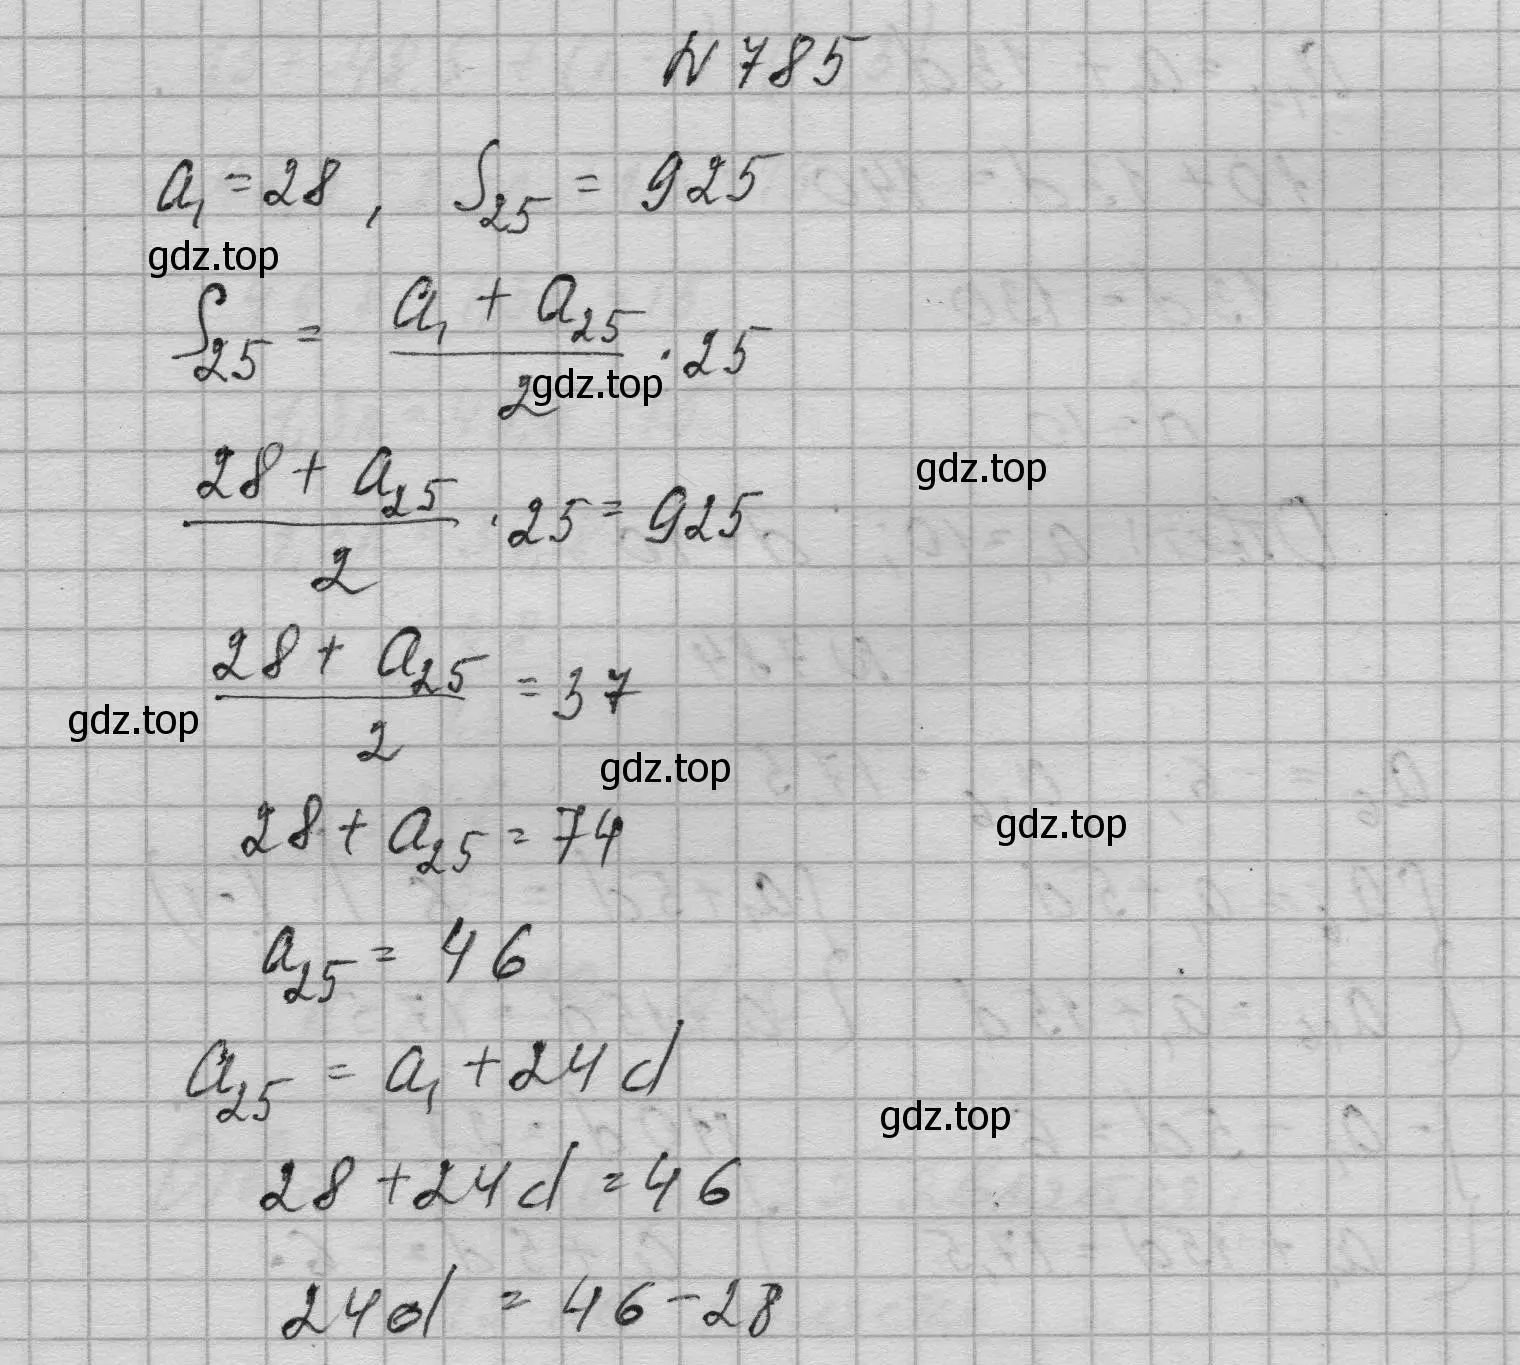 N 785
a₁ = 28, S₂₅ = 925
gdz.top
S₂₅ = (a₁ + a₂₅)/2 · 25
gdz.top
gdz.top
(28 + a₂₅)/2 · 25 = 925
(28 + a₂₅)/2 = 37
gdz.top
gdz.top
28 + a₂₅ = 74
gdz.top
a₂₅ = 46
a₂₅ = a₁ + 24d
gdz.top
28 + 24d = 46
24d = 46 - 28